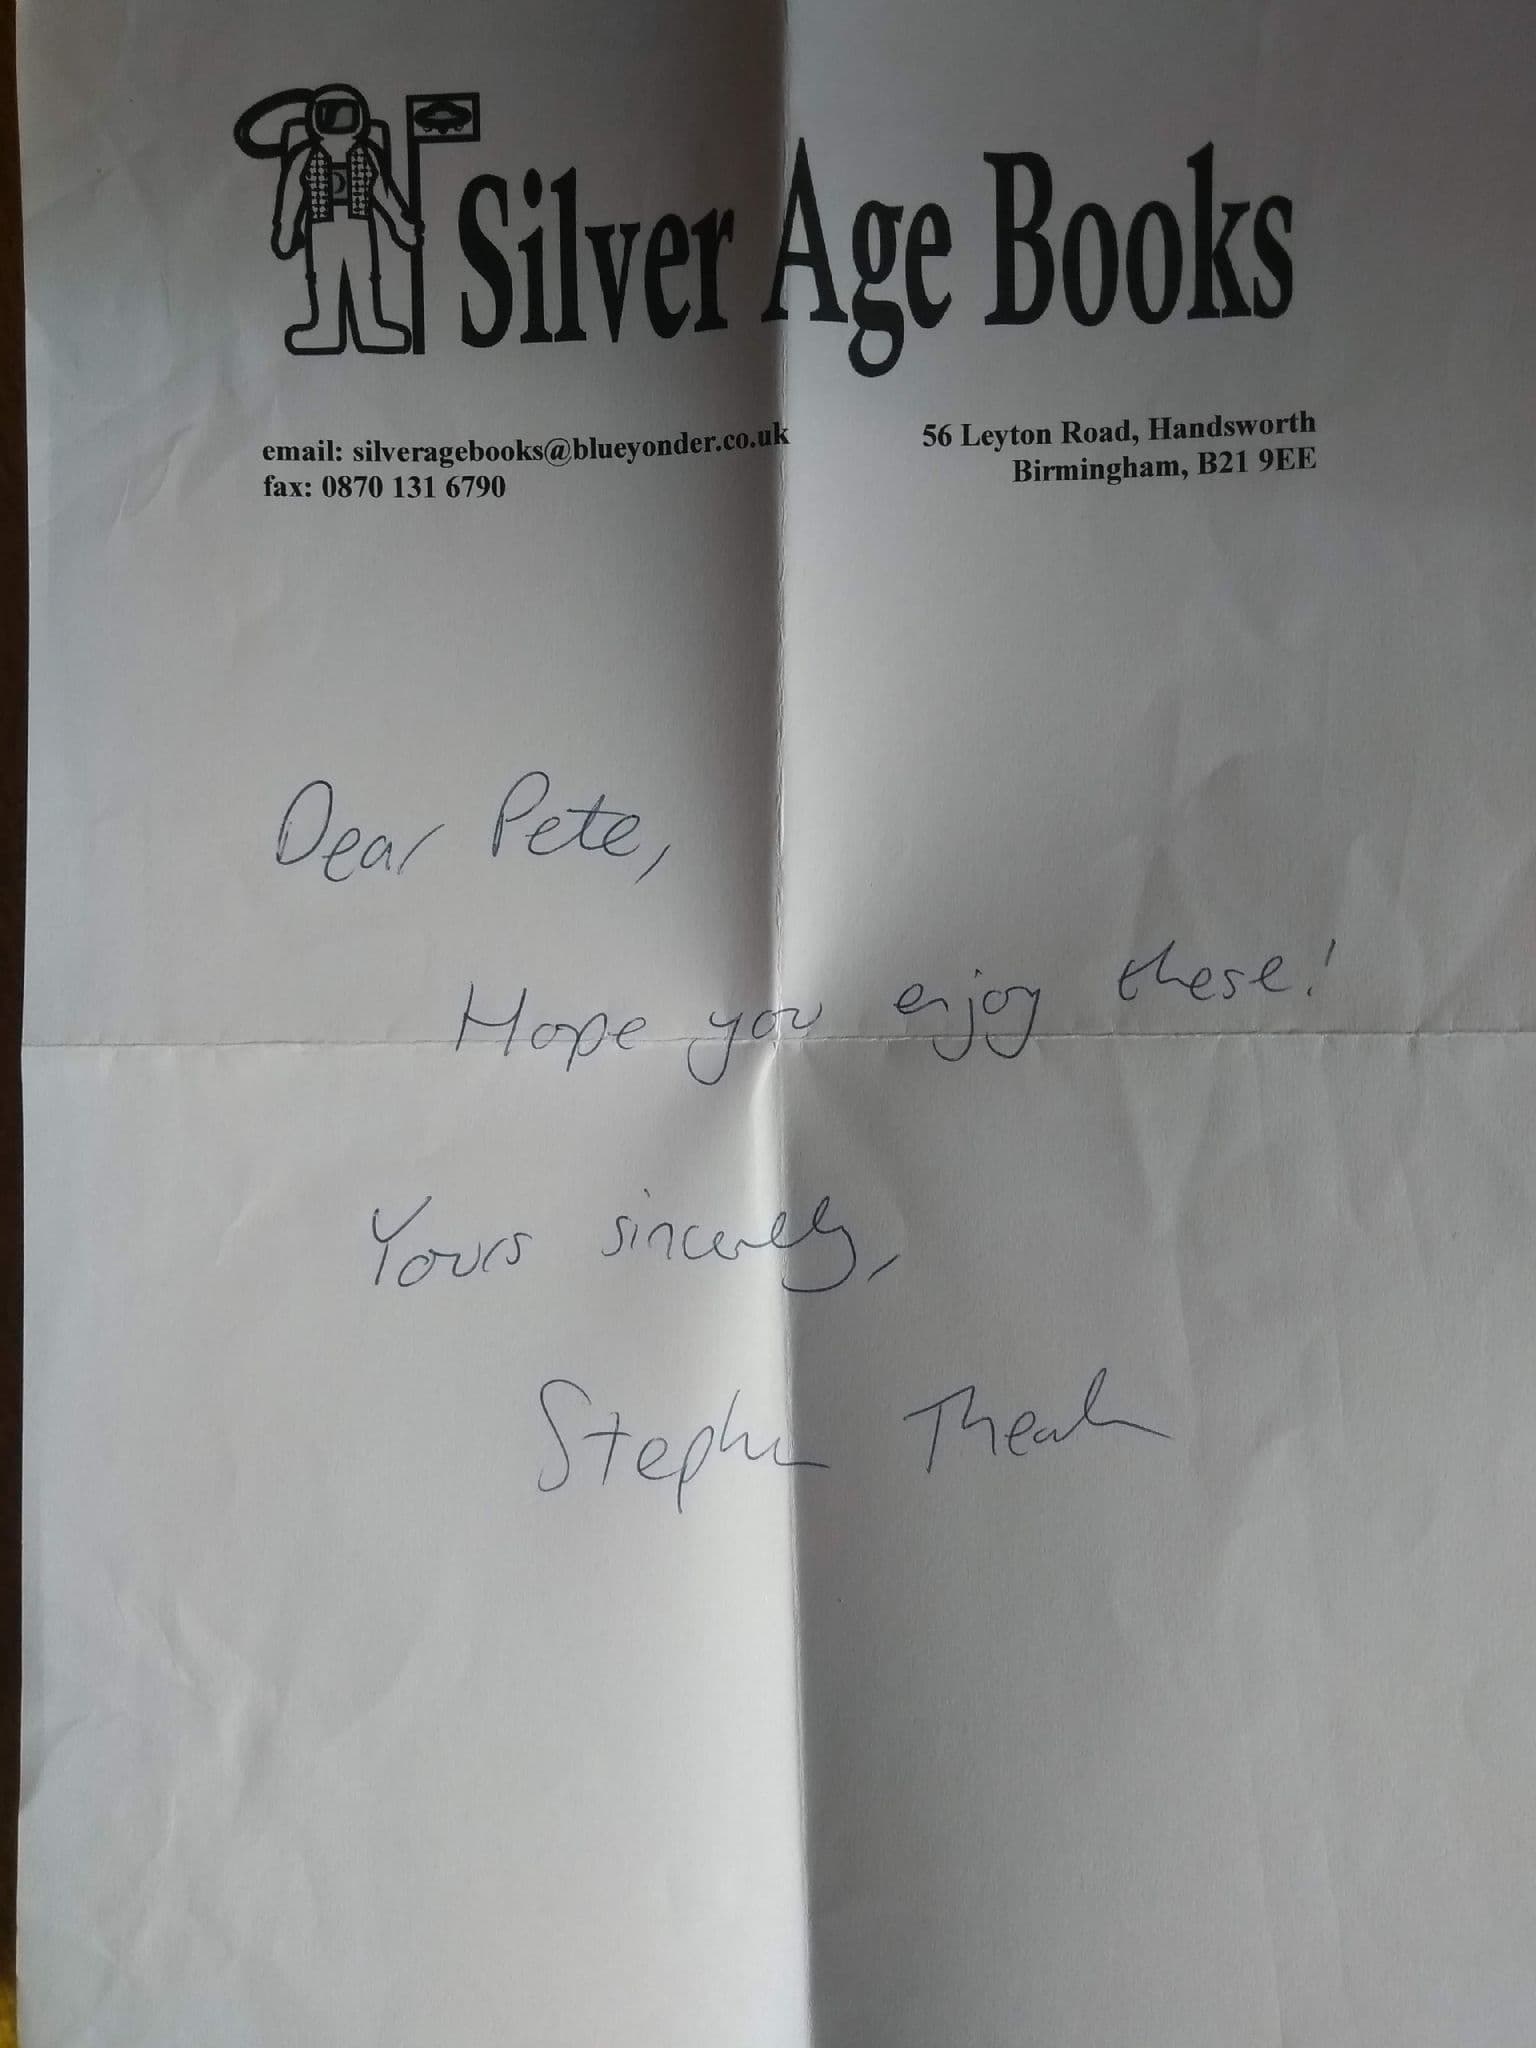 Silver Age Books
email: silveragebooks@blueyonder.co.uk
fax: 0870 131 6790
56 Leyton Road, Handsworth
Birmingham, B21 9EE
Dear Pete,
Hope you enjoy these!
Yours sincerely,
Stephen